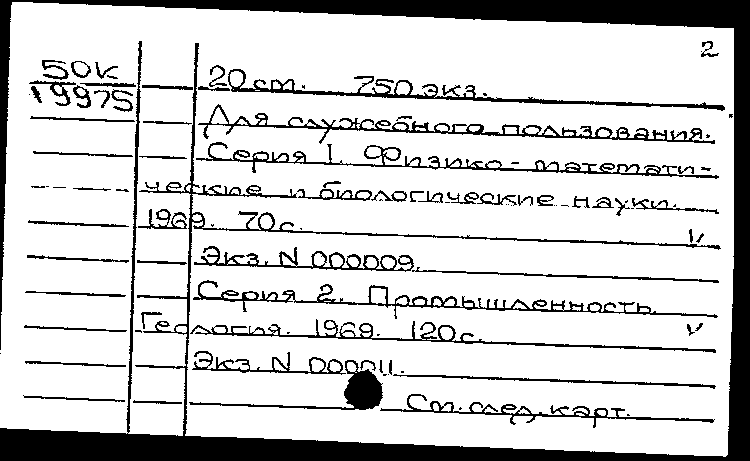 2
50К
19975
20 ст. 750 экз.
Для служебного пользования.
Серия 1. Физико-математи-
ческие и биологические науки.
1969. 70 с. V
Экз. N 000009.
Серия 2. Промышленность.
Геология. 1969. 120 с. V
Экз. N 000011.
См. след. карт.